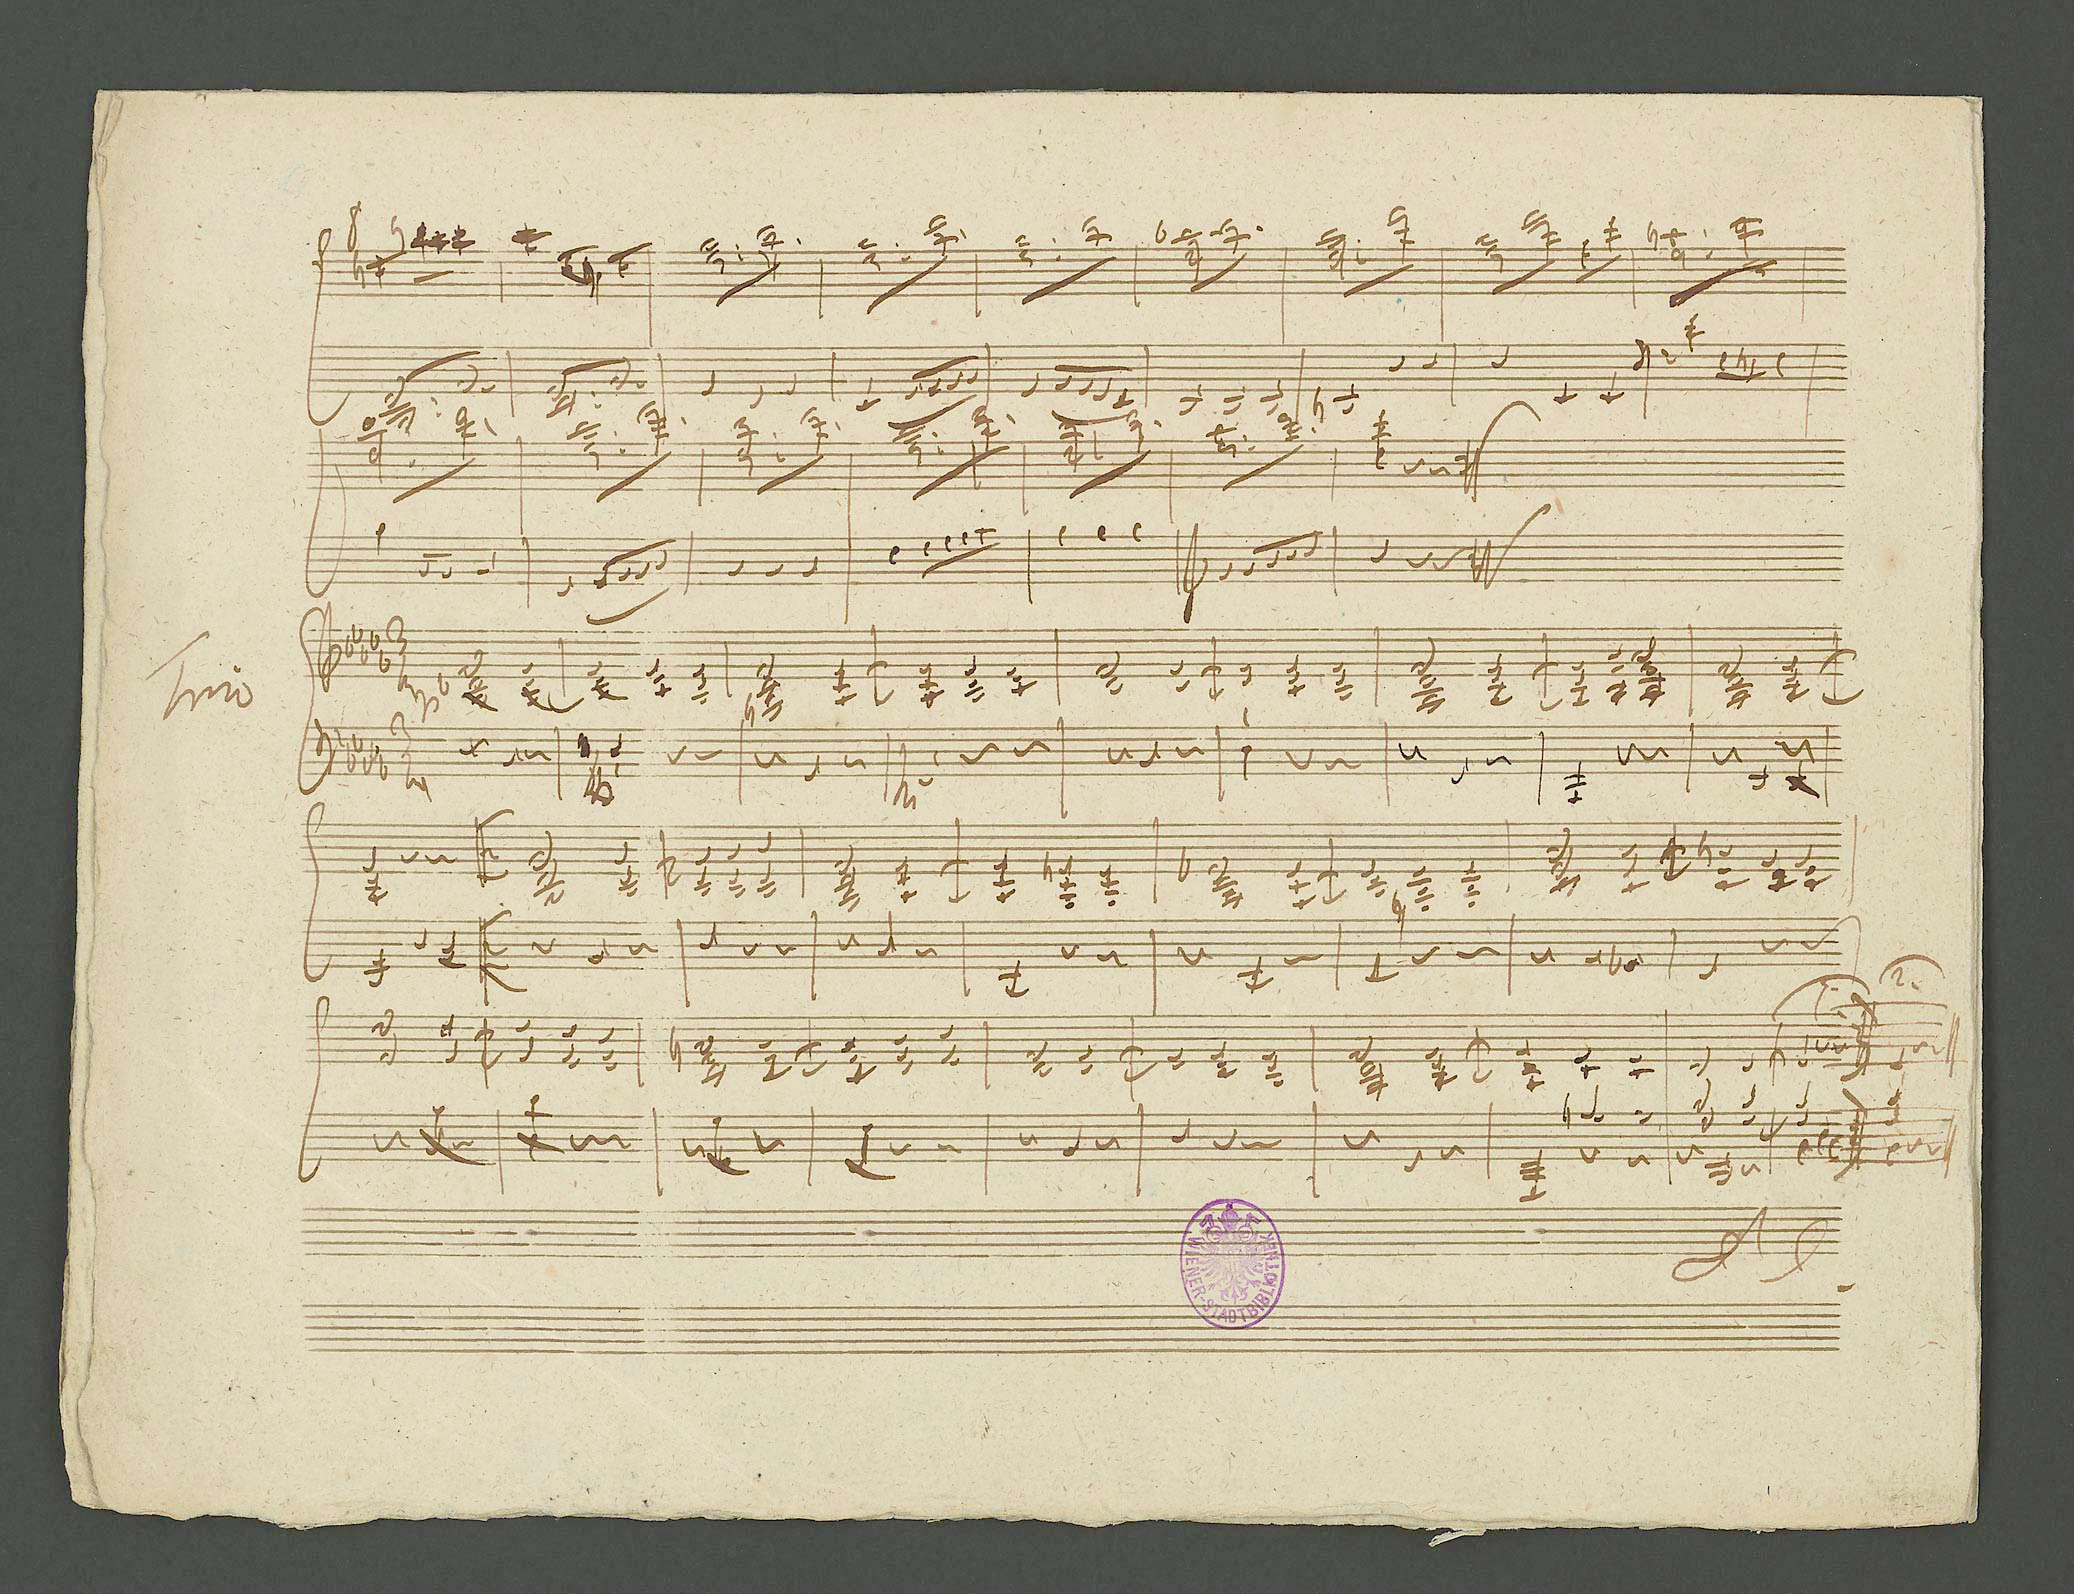 8
Trio
2.
WIENER-STADTBIBLIOTHEK